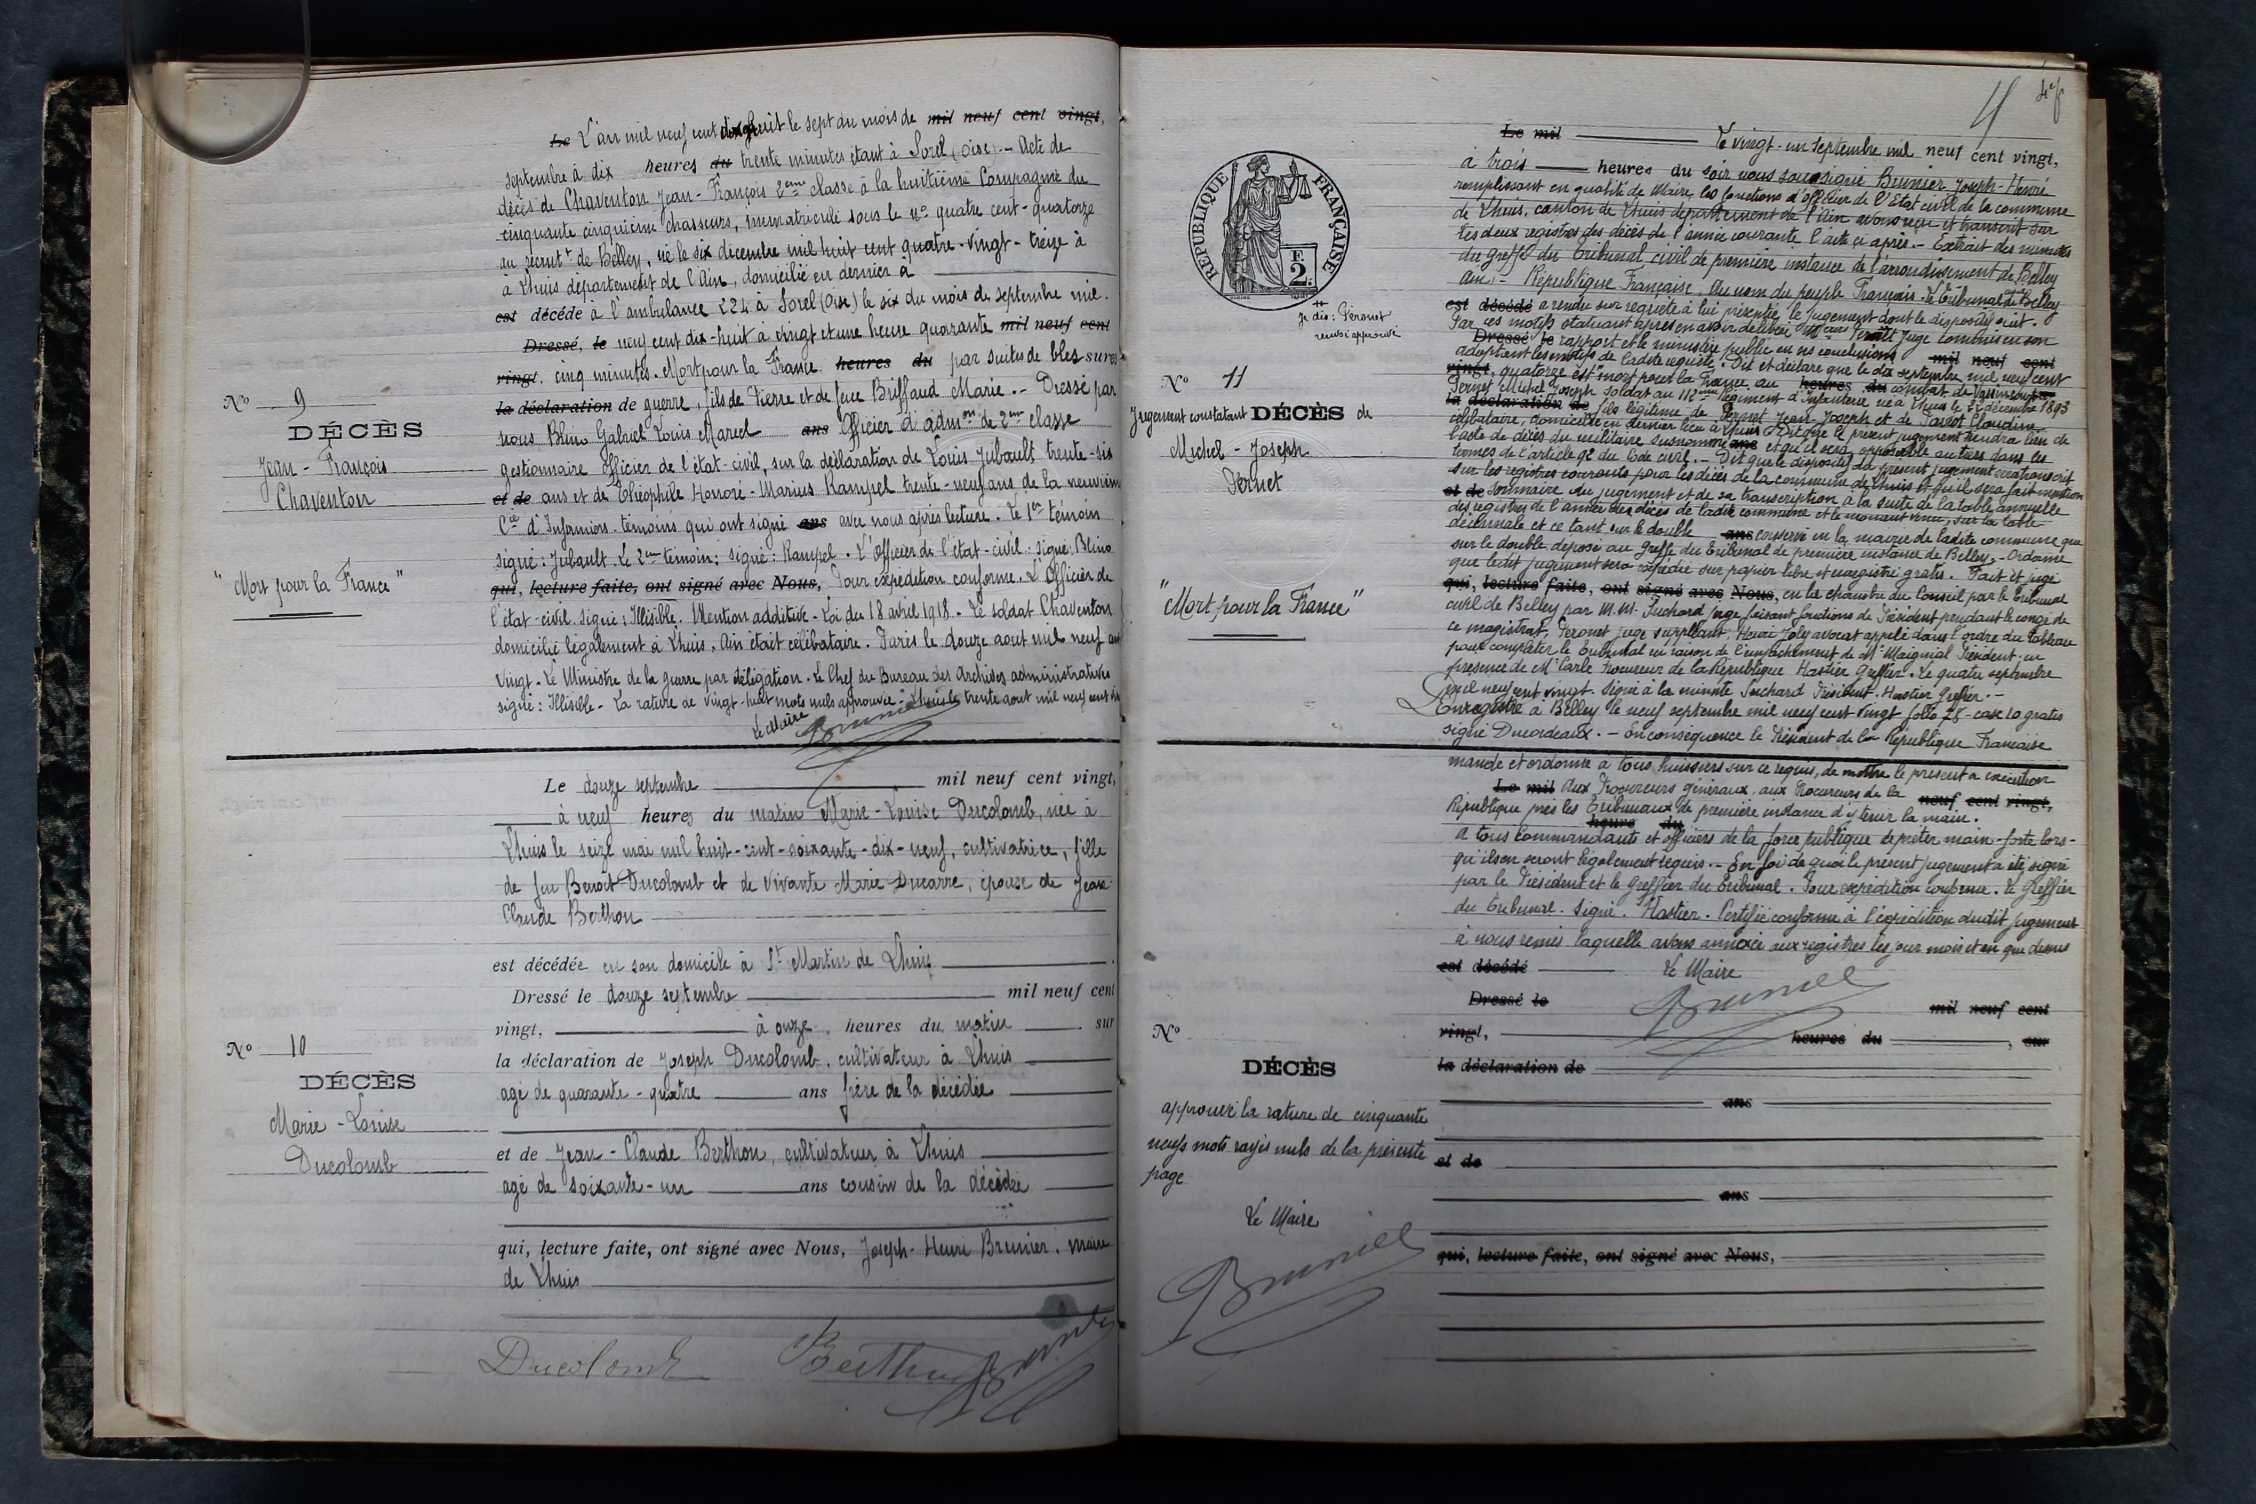 Le L'an mil neuf cent dix huit le sept du mois de mil neuf cent vingt,
septembre à dix heures du trente minutes étant à Sorel (Oise). - Acte de
décès de Chaventon Jean-François 2eme classe à la huitième Compagnie du
cinquante cinquième chasseurs, immatriculé sous le no quatre cent-quatorze
au recrutt de Belley, né le six décembre mil huit cent quatre-vingt-treize à
a Lhuis département de l'Ain, domicilié en dernier à
est décédé à l'ambulance 224 à Sorel (Oise) le six du mois de septembre mil.
Dressé, le neuf cent dix-huit à vingt et une heure quarante mil neuf cent
vingt. cinq minutes. Mort pour la France heures du par suites de blessures
la déclaration de guerre, fils de Pierre et de feue Briffaud Marie. - Dressé par
nous Blino Gabriel Louis Marcel ans Officier d'admon de 2me classe
gestionnaire officier de l'état-civil, sur la déclaration de Louis Jubault trente-six
et de ans et de Théophile Honoré-Marius Rampel trente-neuf ans de la neuvième
Cie d'Infirmiers. témoins qui ont signé ans avec nous après lecture. Le 1er témoin
signé: Jubault. Le 2me témoin: signé: Rampel. L'Officier de l'état-civil: signé: Blino
qui, lecture faite, ont signé avec Nous, Pour expédition conforme. L'Officier de
l'état-civil. signé: Illisible. Mention additive. Loi du 18 avril 1918. Le soldat Chaventon
domicilié légalement à Lhuis, Ain était célibataire. Paris le douze aout mil neuf cent
vingt. Le Ministre de la guerre par délégation. Le Chef du Bureau des Archives administratives
signé: Illisible. La rature de vingt-huit mots nuls approuvée. - Lhuis le trente aout mil neuf cent
Le Maire
Brunier
No 9
DÉCÈS
Jean-François
Chaventon
"Mort pour la France"
Le douze septembre mil neuf cent vingt,
à neuf heures du matin Marie-Louise Ducolomb, née à
Lhuis le seize mai mil huit-cent-soixante-dix-neuf, cultivatrice, fille
de feu Benoit Ducolomb et de vivante Marie Ducarre, épouse de Jean
Claude Berthon
est décédée en son domicile à St Martin de Lhuis
Dressé le douze septembre mil neuf cent
vingt, à onze heures du matin sur
la déclaration de Joseph Ducolomb, cultivateur à Lhuis
agé de quarante-quatre ans frère de la décédée
et de Jean-Claude Berthon, cultivateur à Lhuis
agé de soixante-un ans cousin de la décédée
qui, lecture faite, ont signé avec Nous, Joseph-Henri Brunier, maire
de Lhuis
Ducolomb Berthon Brunier
No 10
DÉCÈS
Marie-Louise
Ducolomb
RÉPUBLIQUE FRANÇAISE
2E
Je dis: Peronet
renvoi approuvé
No 11
Jugement constatant DÉCÈS de
Michel-Joseph
Pernet
"Mort pour la France"
Le mil Le vingt-un septembre mil neuf cent vingt,
à trois heures du soir nous soussigné Brunier Joseph-Henri
remplissant en qualité de Maire, les fonctions d'officier de l'Etat civil de la commune
de Lhuis, canton de Lhuis département de l'Ain avons reçu et transcrit sur
les deux registres des décès de l'année courante l'acte ci après. - Extrait des minutes
du greffe du Tribunal civil de première instance de l'arrondissement de Belley
Ain - République Française. Au nom du peuple Français. Le Tribunal de Belley
est décédé a rendu sur requête à lui présentée le jugement dont le dispositif suit.
Par ces motifs statuant après en avoir délibéré Juge commis en son
Dressé le rapport et le ministère public en ses conclusions mil neuf cent
adoptant les motifs de ladite requête. Dit et déclare que le dix septembre mil neuf cent
vingt, quatorze est "mort pour la France" au heures du combat de
Pernet Michel Joseph soldat au régiment d'Infanterie né à Lhuis le décembre 1893
la déclaration de fils légitime de Pernet Jean Joseph et de Claudine
célibataire, domicilié en dernier lieu à Lhuis. Dit que le présent jugement tiendra lieu de
l'acte de décès du militaire susnommé ans et qu'il sera opposable aux tiers dans les
termes de l'article 92 du Code civil. - Dit que le dispositif du présent jugement sera transcrit
sur les registres courants pour les décès de la commune de Lhuis et qu'il sera fait mention
et de sommaire du jugement et de sa transcription à la suite de la table annuelle
des registres de l'année des décès de ladite commune et le moment venu, sur la table
décennale et ce tant sur le double ans conservé en la mairie de ladite commune que
sur le double déposé au greffe du Tribunal de première instance de Belley. - Ordonne
que ledit jugement sera expédié sur papier libre et enregistré gratis. Fait et jugé
qui, lecture faite, ont signé avec Nous, en la chambre du Conseil par le Tribunal
civil de Belley par M.M. Suchard juge faisant fonctions de Président pendant le congé de
ce magistrat, Peronet juge suppléant, Henri Joly avocat appelé dans l'ordre du tableau
pour compléter le Tribunal en raison de l'empêchement de Mr Maignial Président, en
présence de Mr Carle Procureur de la République Hastier greffier. Le quatre septembre
mil neuf cent vingt. Signé à la minute Suchard Président. Hastier Greffier. -
Enregistré à Belley le neuf septembre mil neuf cent vingt folio 78 - case 10 gratis
signé Ducordeaux. - En conséquence le Président de la République Française
mande et ordonne à tous huissiers sur ce requis, de mettre le présent à exécution
Le mil Aux Procureurs généraux, aux Procureurs de la neuf cent vingt,
République près les Tribunaux de première instance d'y tenir la main.
heure du
A tous commandants et officiers de la force publique de prêter main-forte lors-
qu'ils en seront légalement requis. - En foi de quoi le présent jugement a été signé
par le Président et le greffier du Tribunal. Pour expédition conforme. Le Greffier
du Tribunal. Signé. Hastier. Certifié conforme à l'expédition dudit jugement
à nous remis laquelle avons annexée aux registres les jour mois et an que dessus
est décédé Le Maire
Brunier
Dressé le mil neuf cent
vingt, heures du , sur
la déclaration de
ans
et de
ans
qui, lecture faite, ont signé avec Nous,
No
DÉCÈS
approuvé la rature de cinquante
neufs mots rayés nuls de la présente
page
Le Maire
Brunier